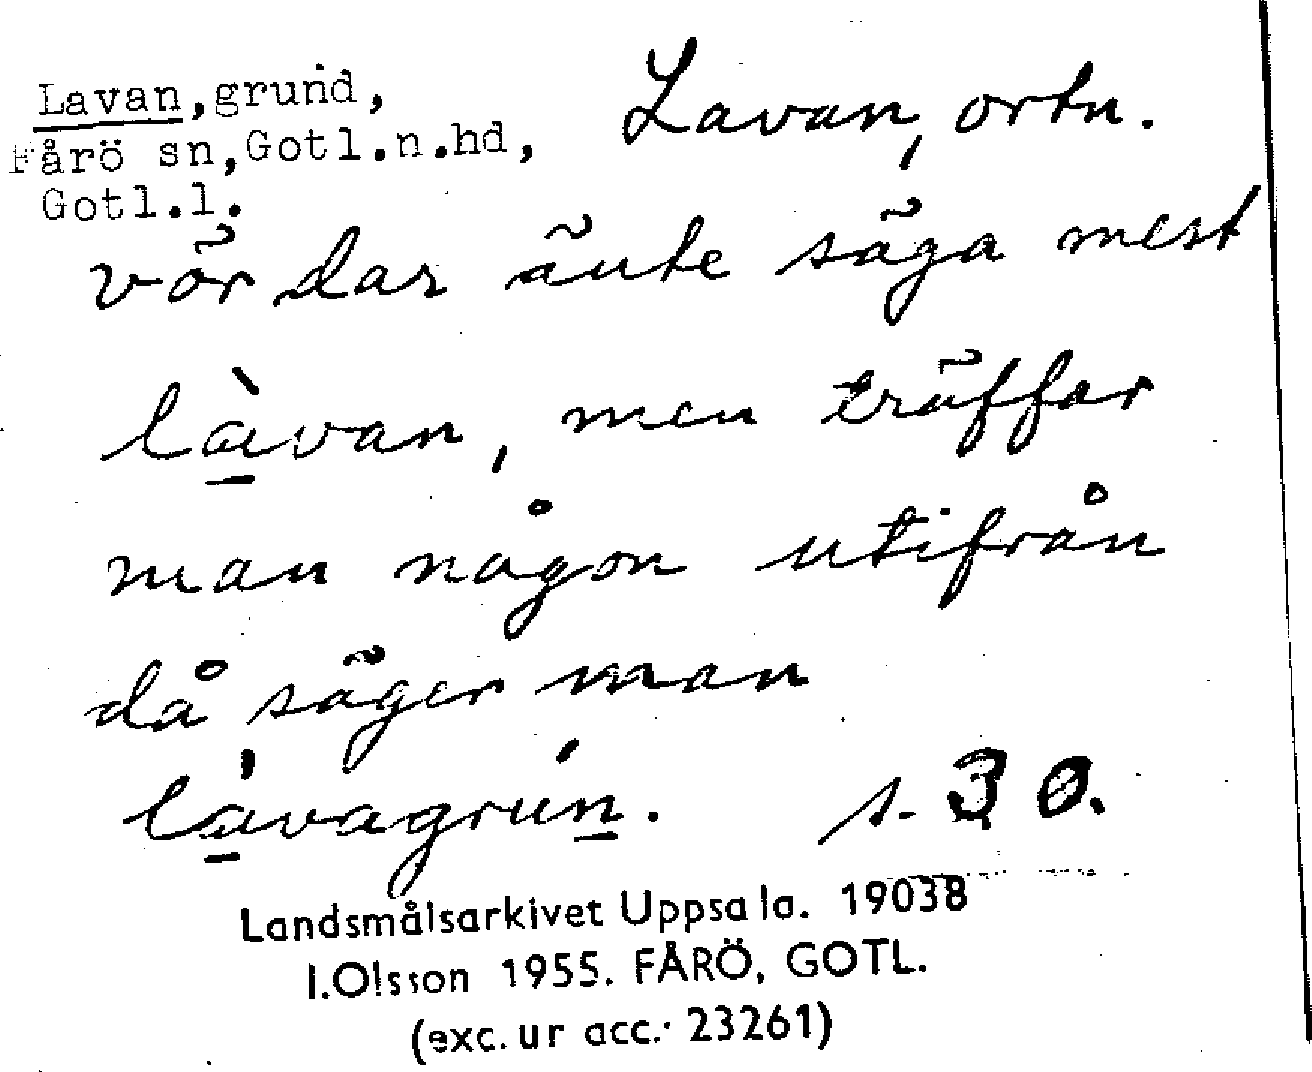 Lavan, grund,
Fårö sn, Gotl.n.hd,
Gotl.l.
Lavan, ortn.
vör dar äute säga mest
làvan, men träffar
man någon utifrån
då säger man
lávagrún. s. 30.
Landsmålsarkivet Uppsala. 19038
I.Olsson 1955. FÅRÖ, GOTL.
(exc. ur acc.: 23261)